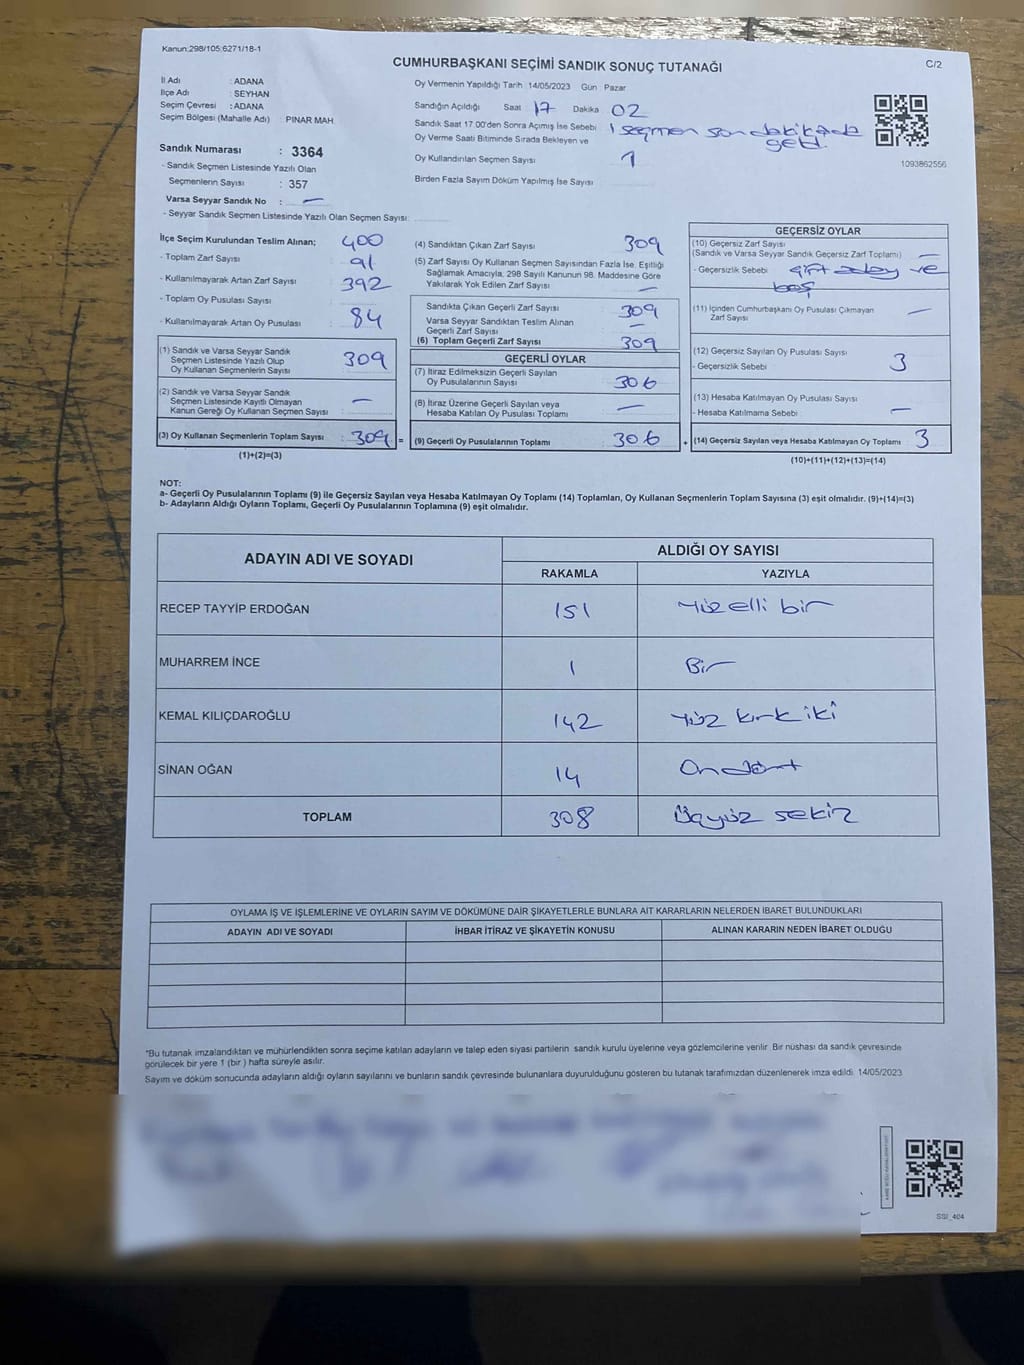 Kanun:298/105;6271/18-1
C/2
CUMHURBAŞKANI SEÇİMİ SANDIK SONUÇ TUTANAĞI
İl Adı : ADANA
İlçe Adı : SEYHAN
Seçim Çevresi : ADANA
Seçim Bölgesi (Mahalle Adı) : PINAR MAH.
Sandık Numarası : 3364
- Sandık Seçmen Listesinde Yazılı Olan
Seçmenlerin Sayısı : 357
Varsa Seyyar Sandık No : —
- Seyyar Sandık Seçmen Listesinde Yazılı Olan Seçmen Sayısı:
Oy Vermenin Yapıldığı Tarih :14/05/2023 Gün Pazar
Sandığın Açıldığı Saat 17 Dakika 02
Sandık Saat 17.00'den Sonra Açımış İse Sebebi 1 seçmen son dakikada
geldi.
Oy Verme Saati Bitiminde Sırada Bekleyen ve
Oy Kullandırılan Seçmen Sayısı 1
Birden Fazla Sayım Döküm Yapılmış İse Sayısı
1093862556
İlçe Seçim Kurulundan Teslim Alınan; 400
- Toplam Zarf Sayısı : 91
- Kullanılmayarak Artan Zarf Sayısı : 392
- Toplam Oy Pusulası Sayısı
- Kullanılmayarak Artan Oy Pusulası : 84
(1) Sandık ve Varsa Seyyar Sandık
Seçmen Listesinde Yazılı Olup
Oy Kullanan Seçmenlerin Sayısı 309
(2) Sandık ve Varsa Seyyar Sandık
Seçmen Listesinde Kayıtlı Olmayan
Kanun Gereği Oy Kullanan Seçmen Sayısı —
(3) Oy Kullanan Seçmenlerin Toplam Sayısı : 309 =
(1)+(2)=(3)
(4) Sandıktan Çıkan Zarf Sayısı 309
(5) Zarf Sayısı Oy Kullanan Seçmen Sayısından Fazla İse, Eşitliği
Sağlamak Amacıyla, 298 Sayılı Kanunun 98. Maddesine Göre
Yakılarak Yok Edilen Zarf Sayısı —
Sandıkta Çıkan Geçerli Zarf Sayısı 309
Varsa Seyyar Sandıktan Teslim Alınan
Geçerli Zarf Sayısı —
(6) Toplam Geçerli Zarf Sayısı 309
GEÇERLİ OYLAR
(7) İtiraz Edilmeksizin Geçerli Sayılan
Oy Pusulalarının Sayısı 306
(8) İtiraz Üzerine Geçerli Sayılan veya
Hesaba Katılan Oy Pusulası Toplamı —
(9) Geçerli Oy Pusulalarının Toplamı 306 +
GEÇERSİZ OYLAR
(10) Geçersiz Zarf Sayısı
(Sandık ve Varsa Seyyar Sandık Geçersiz Zarf Toplamı) —
- Geçersizlik Sebebi : çift aday ve
boş
(11) İçinden Cumhurbaşkanı Oy Pusulası Çıkmayan
Zarf Sayısı —
(12) Geçersiz Sayılan Oy Pusulası Sayısı 3
- Geçersizlik Sebebi :
(13) Hesaba Katılmayan Oy Pusulası Sayısı
- Hesaba Katılmama Sebebi : —
(14) Geçersiz Sayılan veya Hesaba Katılmayan Oy Toplamı 3
(10)+(11)+(12)+(13)=(14)
NOT:
a- Geçerli Oy Pusulalarının Toplamı (9) ile Geçersiz Sayılan veya Hesaba Katılmayan Oy Toplamı (14) Toplamları, Oy Kullanan Seçmenlerin Toplam Sayısına (3) eşit olmalıdır. (9)+(14)=(3)
b- Adayların Aldığı Oyların Toplamı, Geçerli Oy Pusulalarının Toplamına (9) eşit olmalıdır.
ADAYIN ADI VE SOYADI ALDIĞI OY SAYISI
RAKAMLA YAZIYLA
RECEP TAYYİP ERDOĞAN 151 Yüz elli bir
MUHARREM İNCE 1 Bir
KEMAL KILIÇDAROĞLU 142 Yüz kırk iki
SİNAN OĞAN 14 On dört
TOPLAM 308 Üçyüz sekiz
OYLAMA İŞ VE İŞLEMLERİNE VE OYLARIN SAYIM VE DÖKÜMÜNE DAİR ŞİKAYETLERLE BUNLARA AİT KARARLARIN NELERDEN İBARET BULUNDUKLARI
ADAYIN ADI VE SOYADI İHBAR İTİRAZ VE ŞİKAYETİN KONUSU ALINAN KARARIN NEDEN İBARET OLDUĞU
*Bu tutanak imzalandıktan ve mühürlendikten sonra seçime katılan adayların ve talep eden siyasi partilerin sandık kurulu üyelerine veya gözlemcilerine verilir. Bir nüshası da sandık çevresinde
görülecek bir yere 1 (bir) hafta süreyle asılır.
Sayım ve döküm sonucunda adayların aldığı oyların sayılarını ve bunların sandık çevresinde bulunanlara duyurulduğunu gösteren bu tutanak tarafımızdan düzenlenerek imza edildi. 14/05/2023
SSI_404